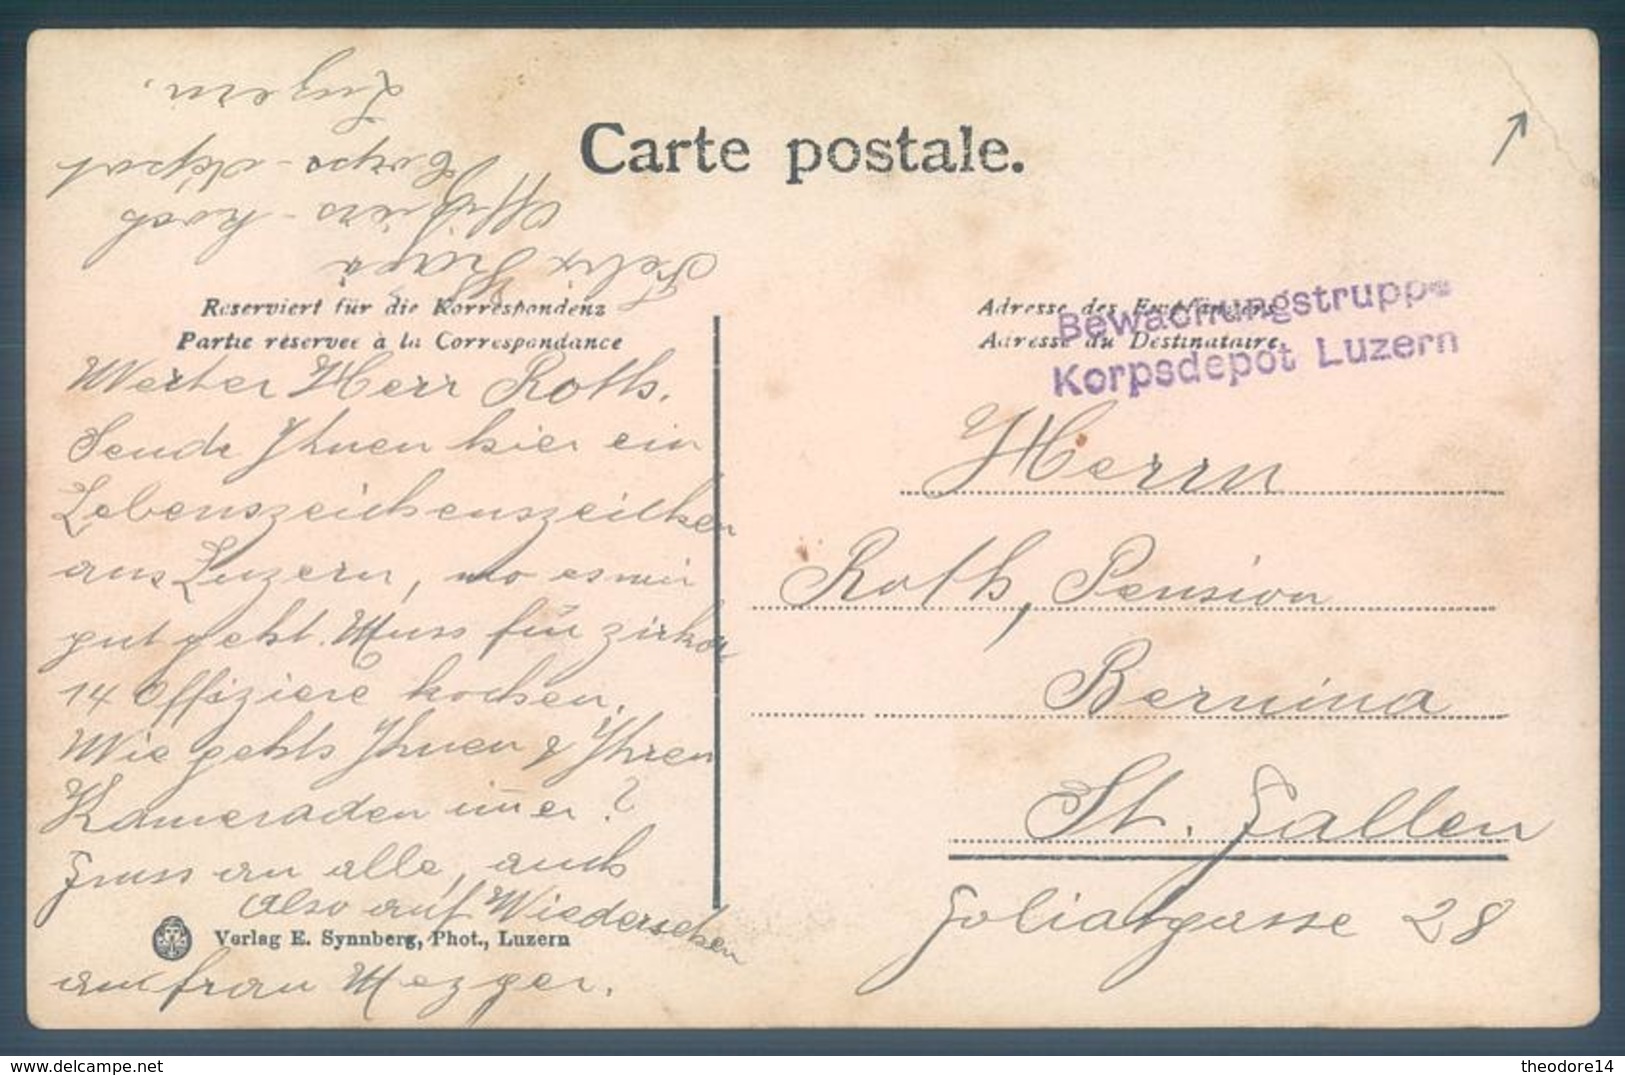 Carte postale.
Luzern.
Korps-depot
Offiziers-Koch
Felix
Reserviert für die Korrespondenz
Partie réservée à la Correspondance
Adresse des Empfängers
Adresse du Destinataire
Bewachungstruppe
Korpsdepot Luzern
Werter Herr Roth.
Sende Ihnen hier ein
Lebenszeichenszeilchen
aus Luzern, wo es mir
gut geht. Muss für zirka
14 Offiziere kochen.
Wie gehts Ihnen & Ihren
Kameraden im̄er?
Gruss an alle, auch
Also auf Wiedersehen
an frau Mezger.
Verlag E. Synnberg, Phot., Luzern
Herrn
Roth, Pension
Bernina
St. Gallen
Goliatgasse 28
theodore14